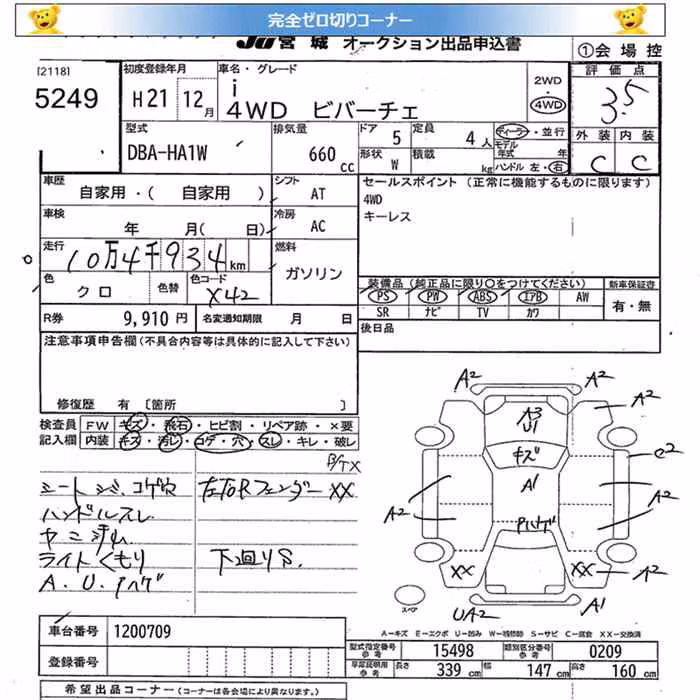 完全ゼロ切りコーナー
JU宮城 オークション出品申込書 ①会場控
[2118] 初度登録年月 車名・グレード 評価点
5249 H21 12月 i 4WD ビバーチェ 2WD ・ 4WD 3.5
型式 排気量 ドア 5 定員 4人 ディーラー・並行 外装 内装
DBA-HA1W 660cc 形状 W 積載 kg モデル年式 年 ハンドル 左・右 C C
車歴 自家用・( 自家用 ) シフト AT セールスポイント (正常に機能するものに限ります)
4WD
車検 年 月( 日) 冷房 AC キーレス
走行 10万4千934km 燃料 ガソリン
色 クロ 色替 色コード X42 装備品(純正品に限り○をつけてください) 新車保証書
PS PW ABS エアB AW 有・無
SR ナビ TV カワ
R券 9,910円 名変通知期限 月 日 後日品
注意事項申告欄(不具合内容等は具体的に記入して下さい)
修復歴 有 [箇所 ]
検査員 FW キズ・飛石・ヒビ割・リペア跡・×要
記入欄 内装 キズ・汚れ・コゲ・穴・スレ・キレ・破レ
シートシミ、コゲ穴 左右Rフェンダー XX
ハンドルスレ
ヤニ汚れ
ライトくもり 下廻りS.
A.U.ハゲ
A2 A2
A2
A3
U1
キズ
C2
A1
A2 A2
XX XX A2
UA2 A1
スペア
A-キズ E-エクボ U-凹み W-補修跡 S-サビ C-腐食 XX-交換済
車台番号 1200709
型式指定番号 参考 15498 類別区分番号 参考 0209
登録番号 車庫証明用 参考 長さ 339 cm 幅 147 cm 高さ 160 cm
希望出品コーナー(コーナーは各会場により異なります。)